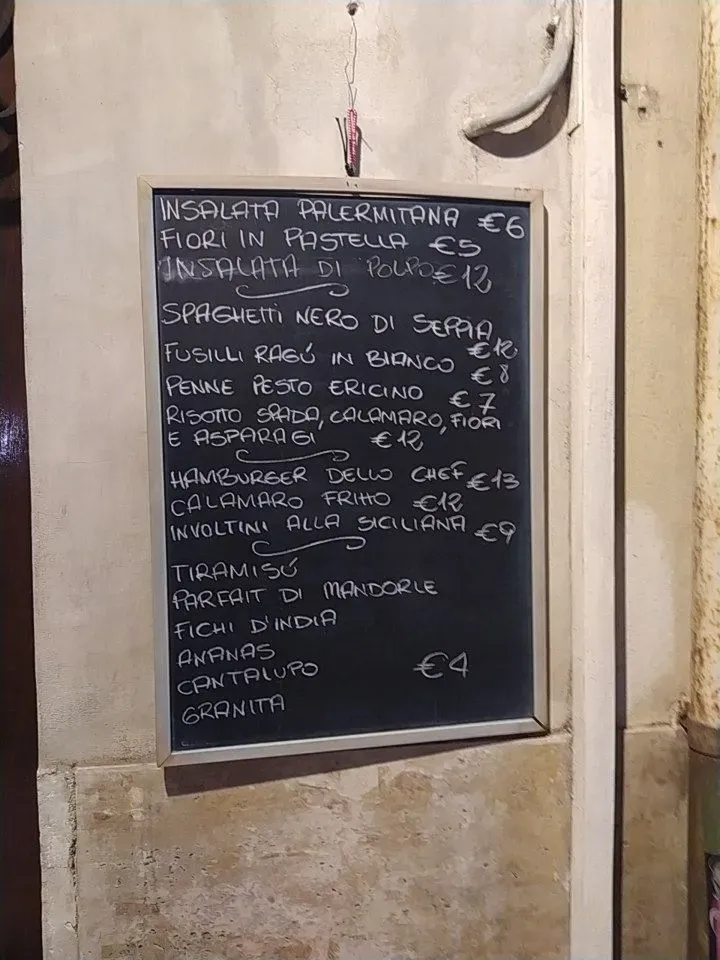 INSALATA PALERMITANA €6
FIORI IN PASTELLA €5
INSALATA DI POLPO €12
SPAGHETTI NERO DI SEPPIA
€12
FUSILLI RAGÚ IN BIANCO €8
PENNE PESTO ERICINO €7
RISOTTO SPADA, CALAMARO, FIORI
E ASPARAGI €12
HAMBURGER DELLO CHEF €13
CALAMARO FRITTO €12
INVOLTINI ALLA SICILIANA €9
TIRAMISÚ
PARFAIT DI MANDORLE
FICHI D'INDIA
ANANAS
CANTALUPO €4
GRANITA